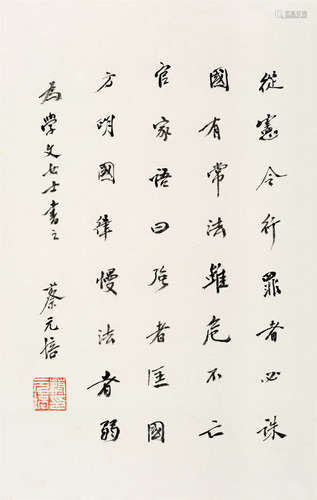 從憲令行罪者必誅
國有常法雖危不亡
官家語曰強者匡國
方明國律慢法者弱
為學文女士書之
蔡元培